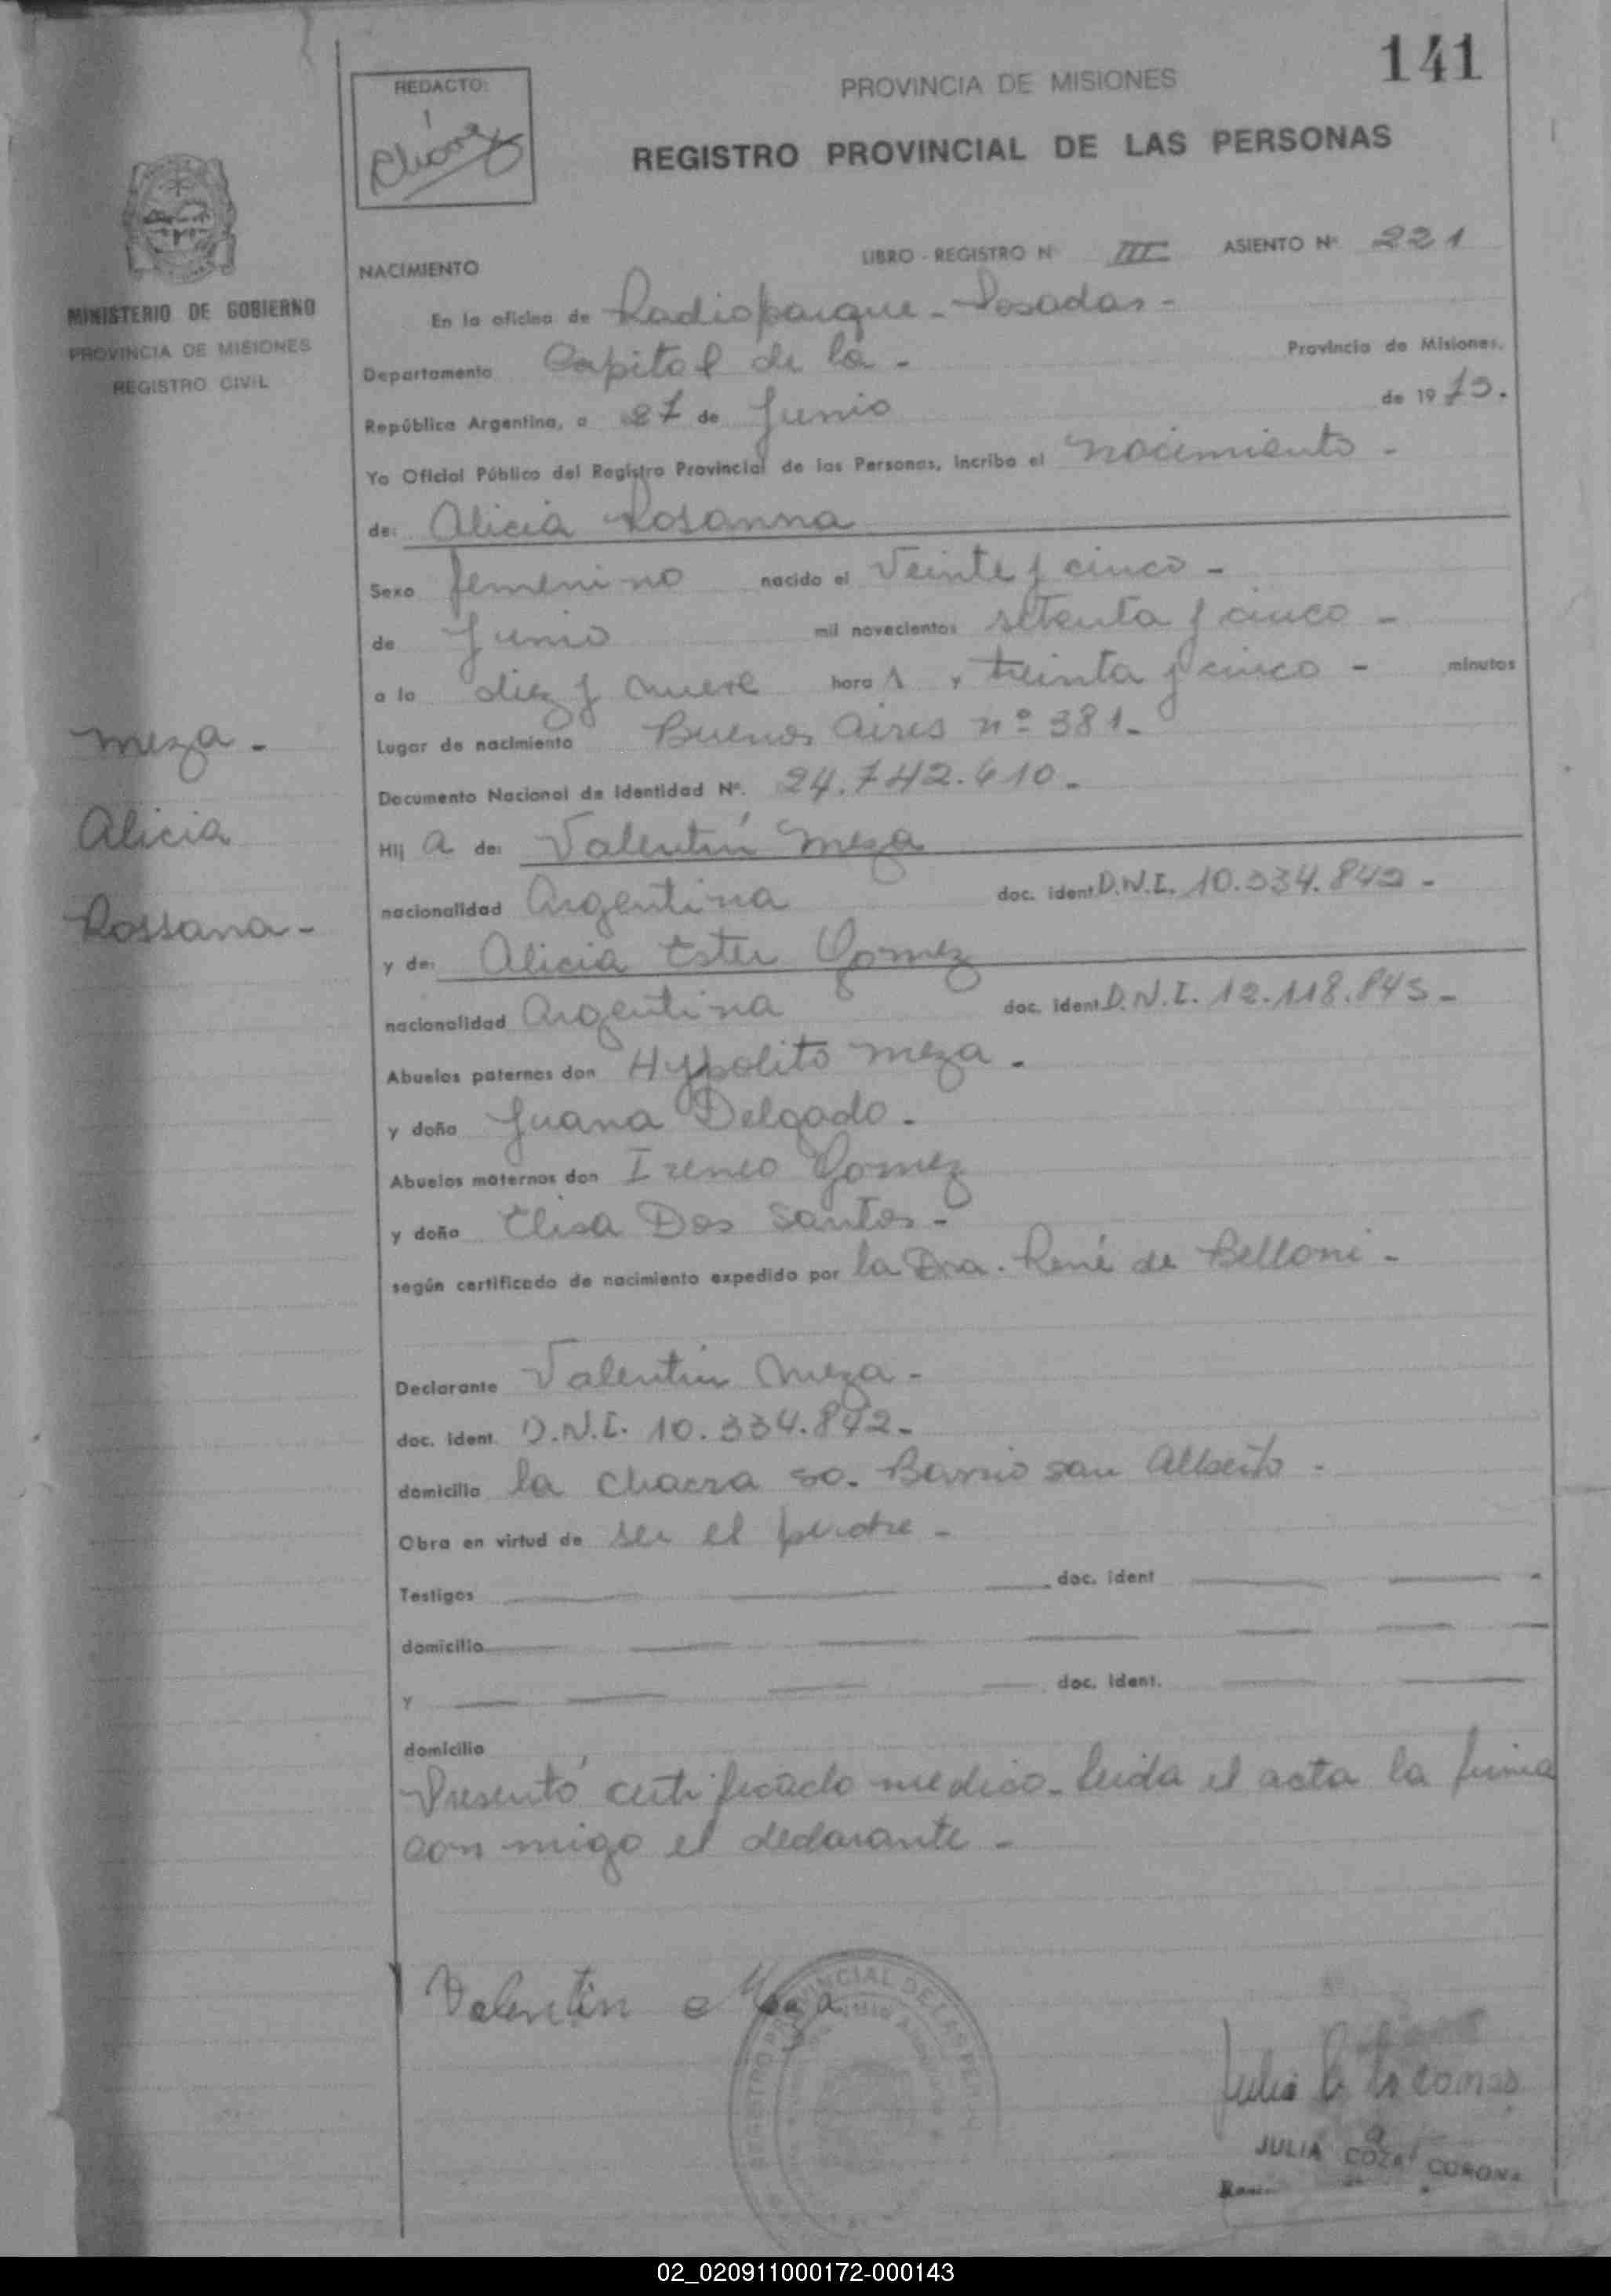 141
REDACTO:
PROVINCIA DE MISIONES
REGISTRO PROVINCIAL DE LAS PERSONAS
NACIMIENTO
LIBRO - REGISTRO Nº III ASIENTO Nº 221
MINISTERIO DE GOBIERNO
PROVINCIA DE MISIONES
REGISTRO CIVIL
En la oficina de Radioparque - Posadas -
Departamento Capital de la - Provincia de Misiones,
República Argentina, a 27 de Junio de 1975.
Yo Oficial Público del Registro Provincial de las Personas, Inscribo el nacimiento -
de: Alicia Rosanna
Sexo femenino nacido el Veinte y cinco -
de Junio mil novecientos setenta y cinco -
a la diez y nueve hora s y treinta y cinco - minutos
Lugar de nacimiento Buenos Aires nº 381-
Documento Nacional de Identidad Nº. 24.742.610-
Hij a de: Valentín Meza
nacionalidad Argentina doc. ident D.N.I. 10.334.842 -
y de: Alicia Ester Gomez
nacionalidad Argentina doc. ident. D.N.I. 12.118.845 -
Abuelos paternos don Hypolito Meza -
y doña Juana Delgado -
Abuelos maternos don Ireneo Gomez
y doña Elisa Dos Santos -
según certificado de nacimiento expedido por la Dra. René de Belloni -
Meza -
Alicia
Rossana -
Declarante Valentin Meza -
doc. ident. D.N.I. 10.334.842-
domicilio la Chacra 50. Barrio san Alberto -
Obra en virtud de ser el padre -
Testigos doc. ident
domicilio
y doc. ident.
domicilio
Presentó certificado medico - leida el acta la firma
con migo el declarante -
Valentin Meza
REGISTRO PROVINCIAL DE LAS PERSONAS
JULIA CORONA
02_020911000172-000143